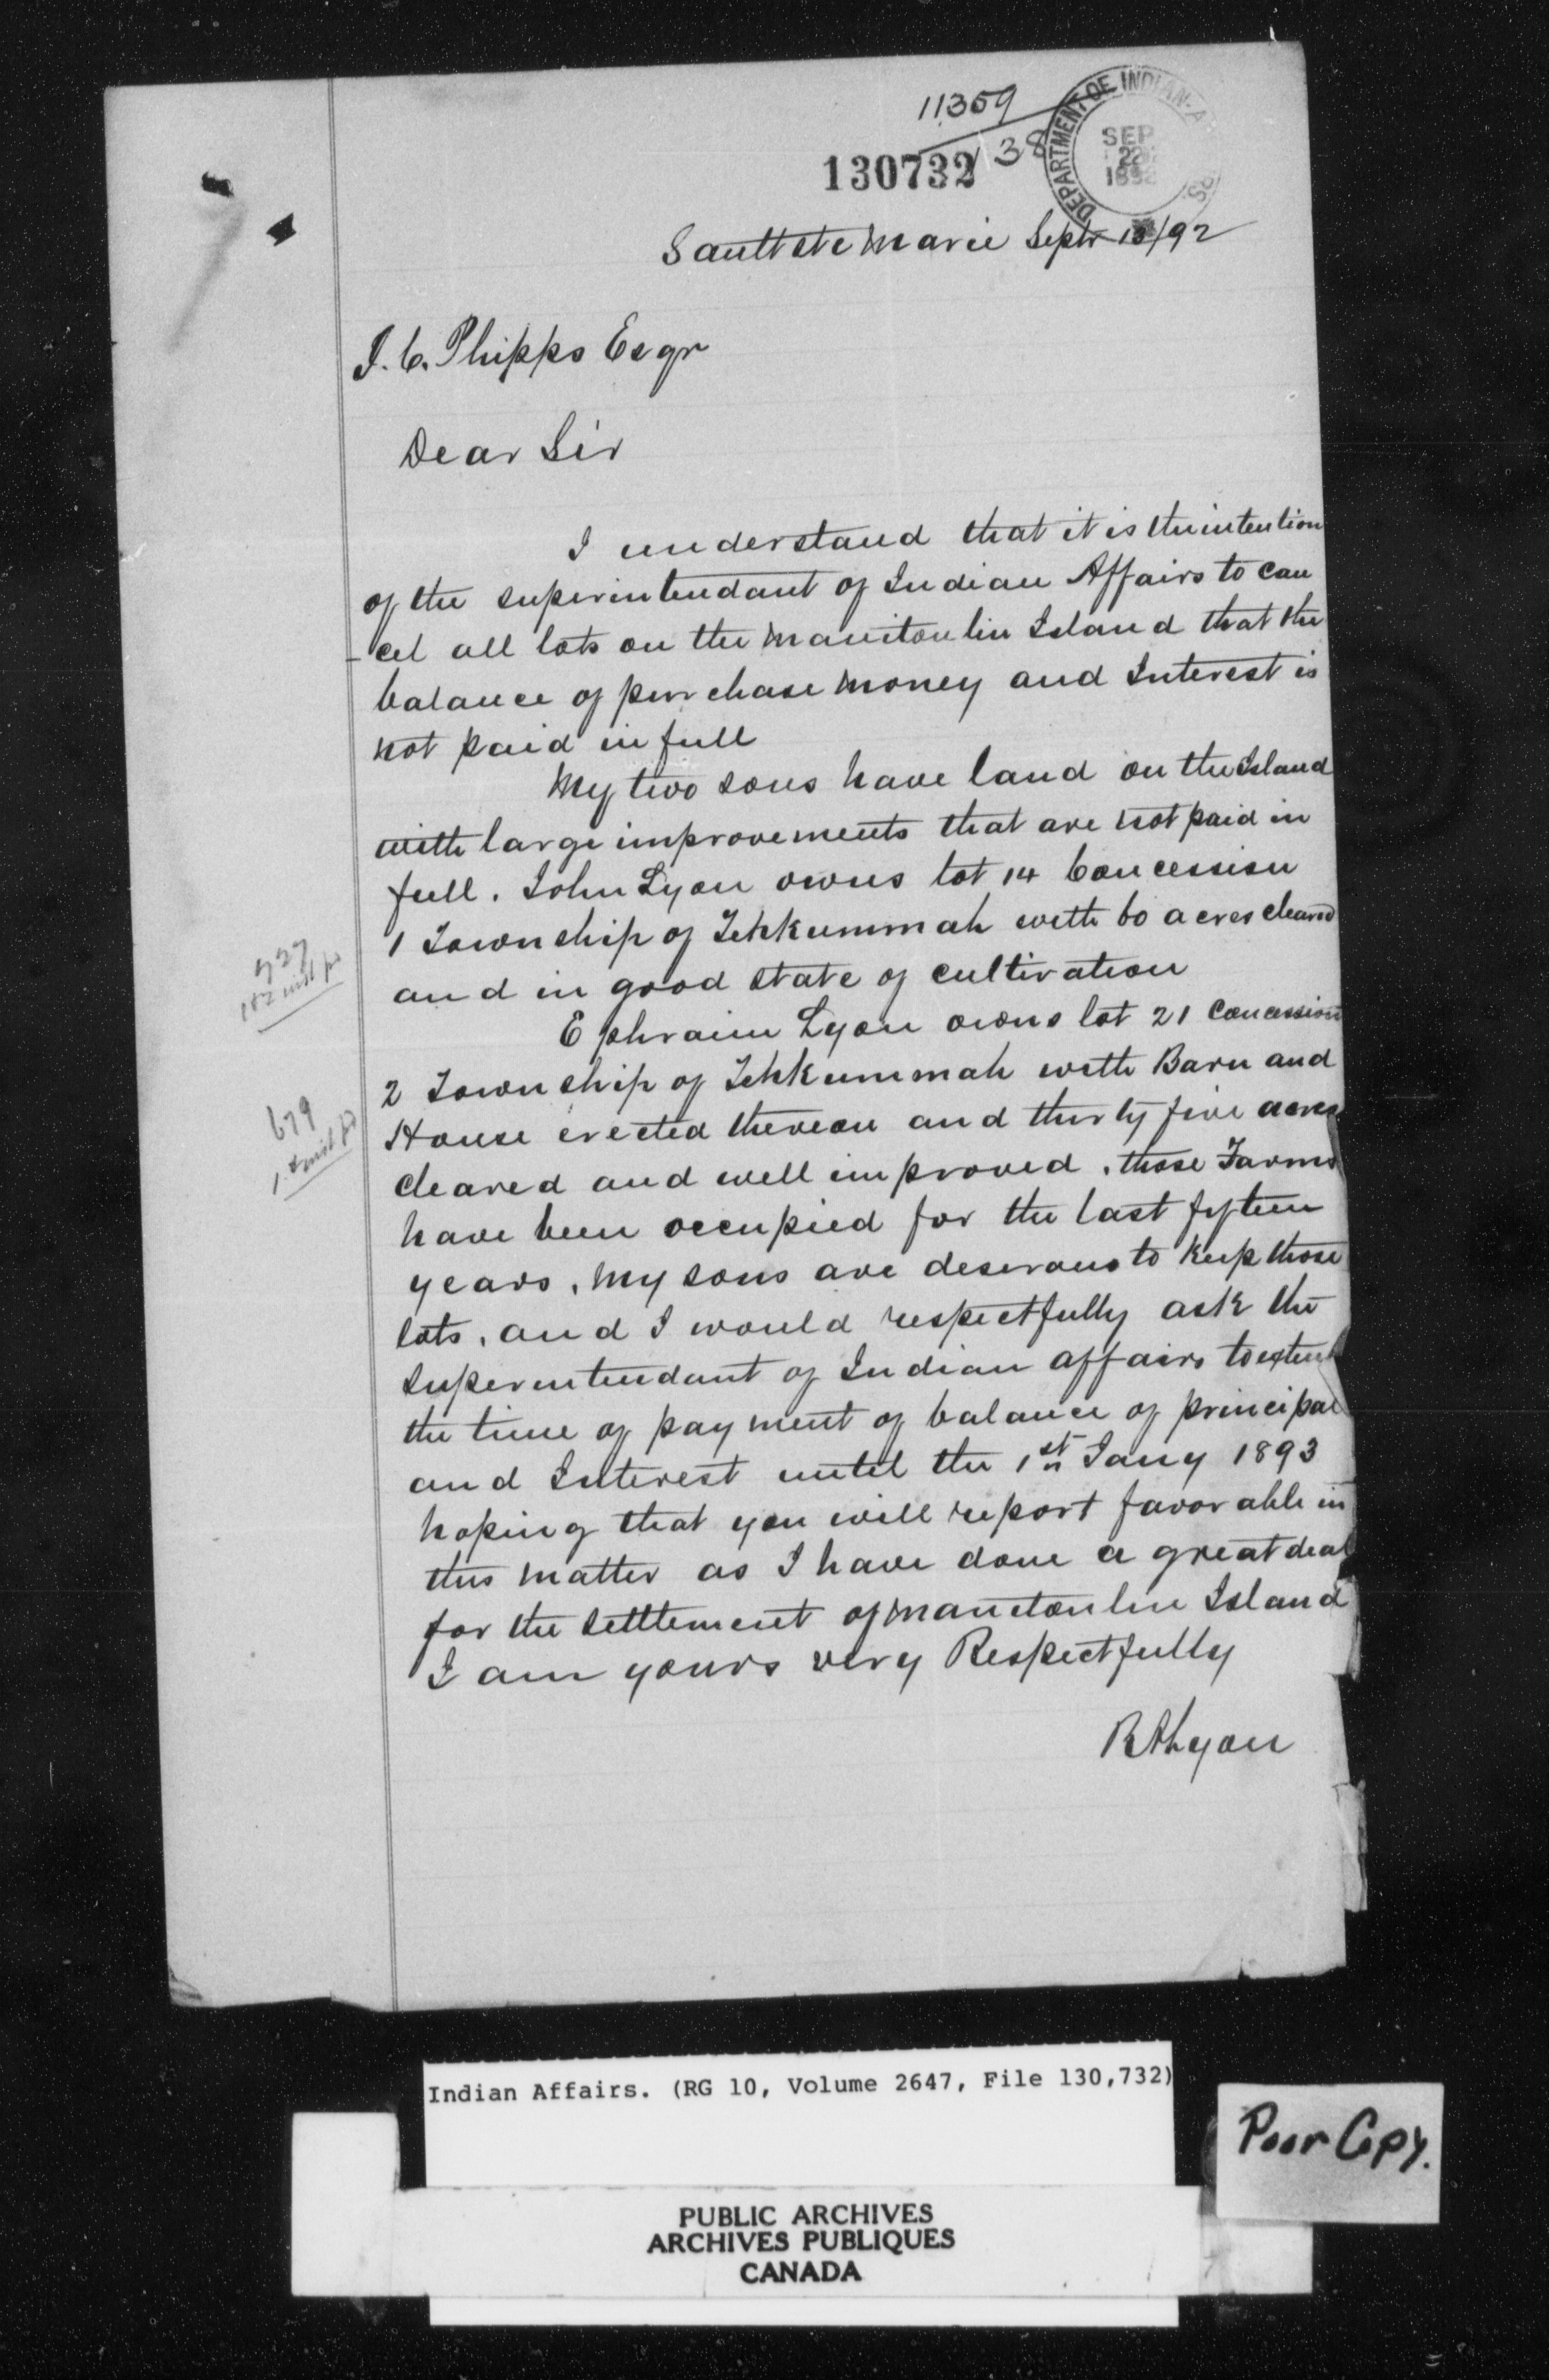 11359
38
130732
DEPARTMENT OF INDIAN A
SEP
22
1892
Sault ste Marie Septr 18/92
J. C. Phipps Esqr
Dear Sir
I understand that it is the intention
of the superintendant of Indian Affairs to can
-cel all lots on the Manitoulin Island that the
balance of purchase money and Interest is
not paid in full
My two sons have land on the Island
with large improvements that are not paid in
full. John Lyon owns lot 14 Concession
1 Township of Tehkummah with 60 acres cleared
and in good state of cultivation
Ephraim Lyon owns lot 21 Concession
2 Township of Tehkummah with Barn and
House erected thereon and thirty five acres
cleared and well improved, those Farms
have been occupied for the last fifteen
years, My sons are deserous to keep those
lots, and I would respectfully ask the
superintendant of Indian affairs to extend
the time of payment of balance of principal
and Interest until the 1st Jany 1893
hoping that you will report favorable in
this matter as I have done a great deal
for the settlement of Manitoulin Island
I am yours very Respectfully
R A Lyon
679
Indian Affairs. (RG 10, Volume 2647, File 130,732)
Poor Copy.
PUBLIC ARCHIVES
ARCHIVES PUBLIQUES
CANADA